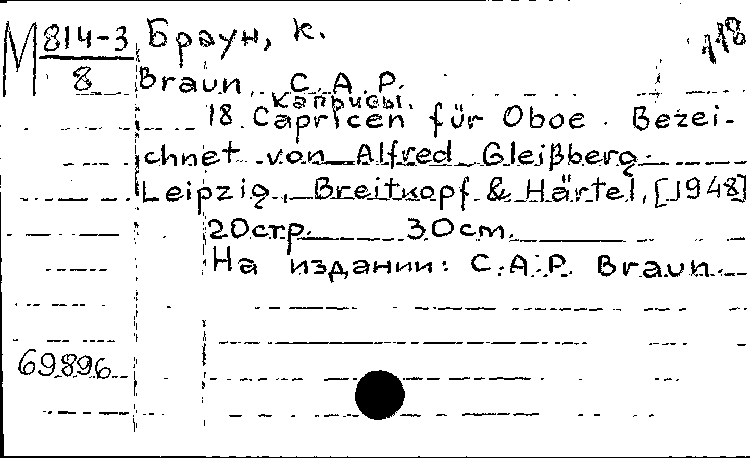 М 814-3 Браун, К. 118
8 Braun, C. A. P.
Каприсы.
18 Capricen für Oboe. Bezei-
chnet von Alfred Gleißberg.
Leipzig, Breitkopf & Härtel, [1948]
20стр. 30cm.
На издании: C. A. P. Braun.
69896